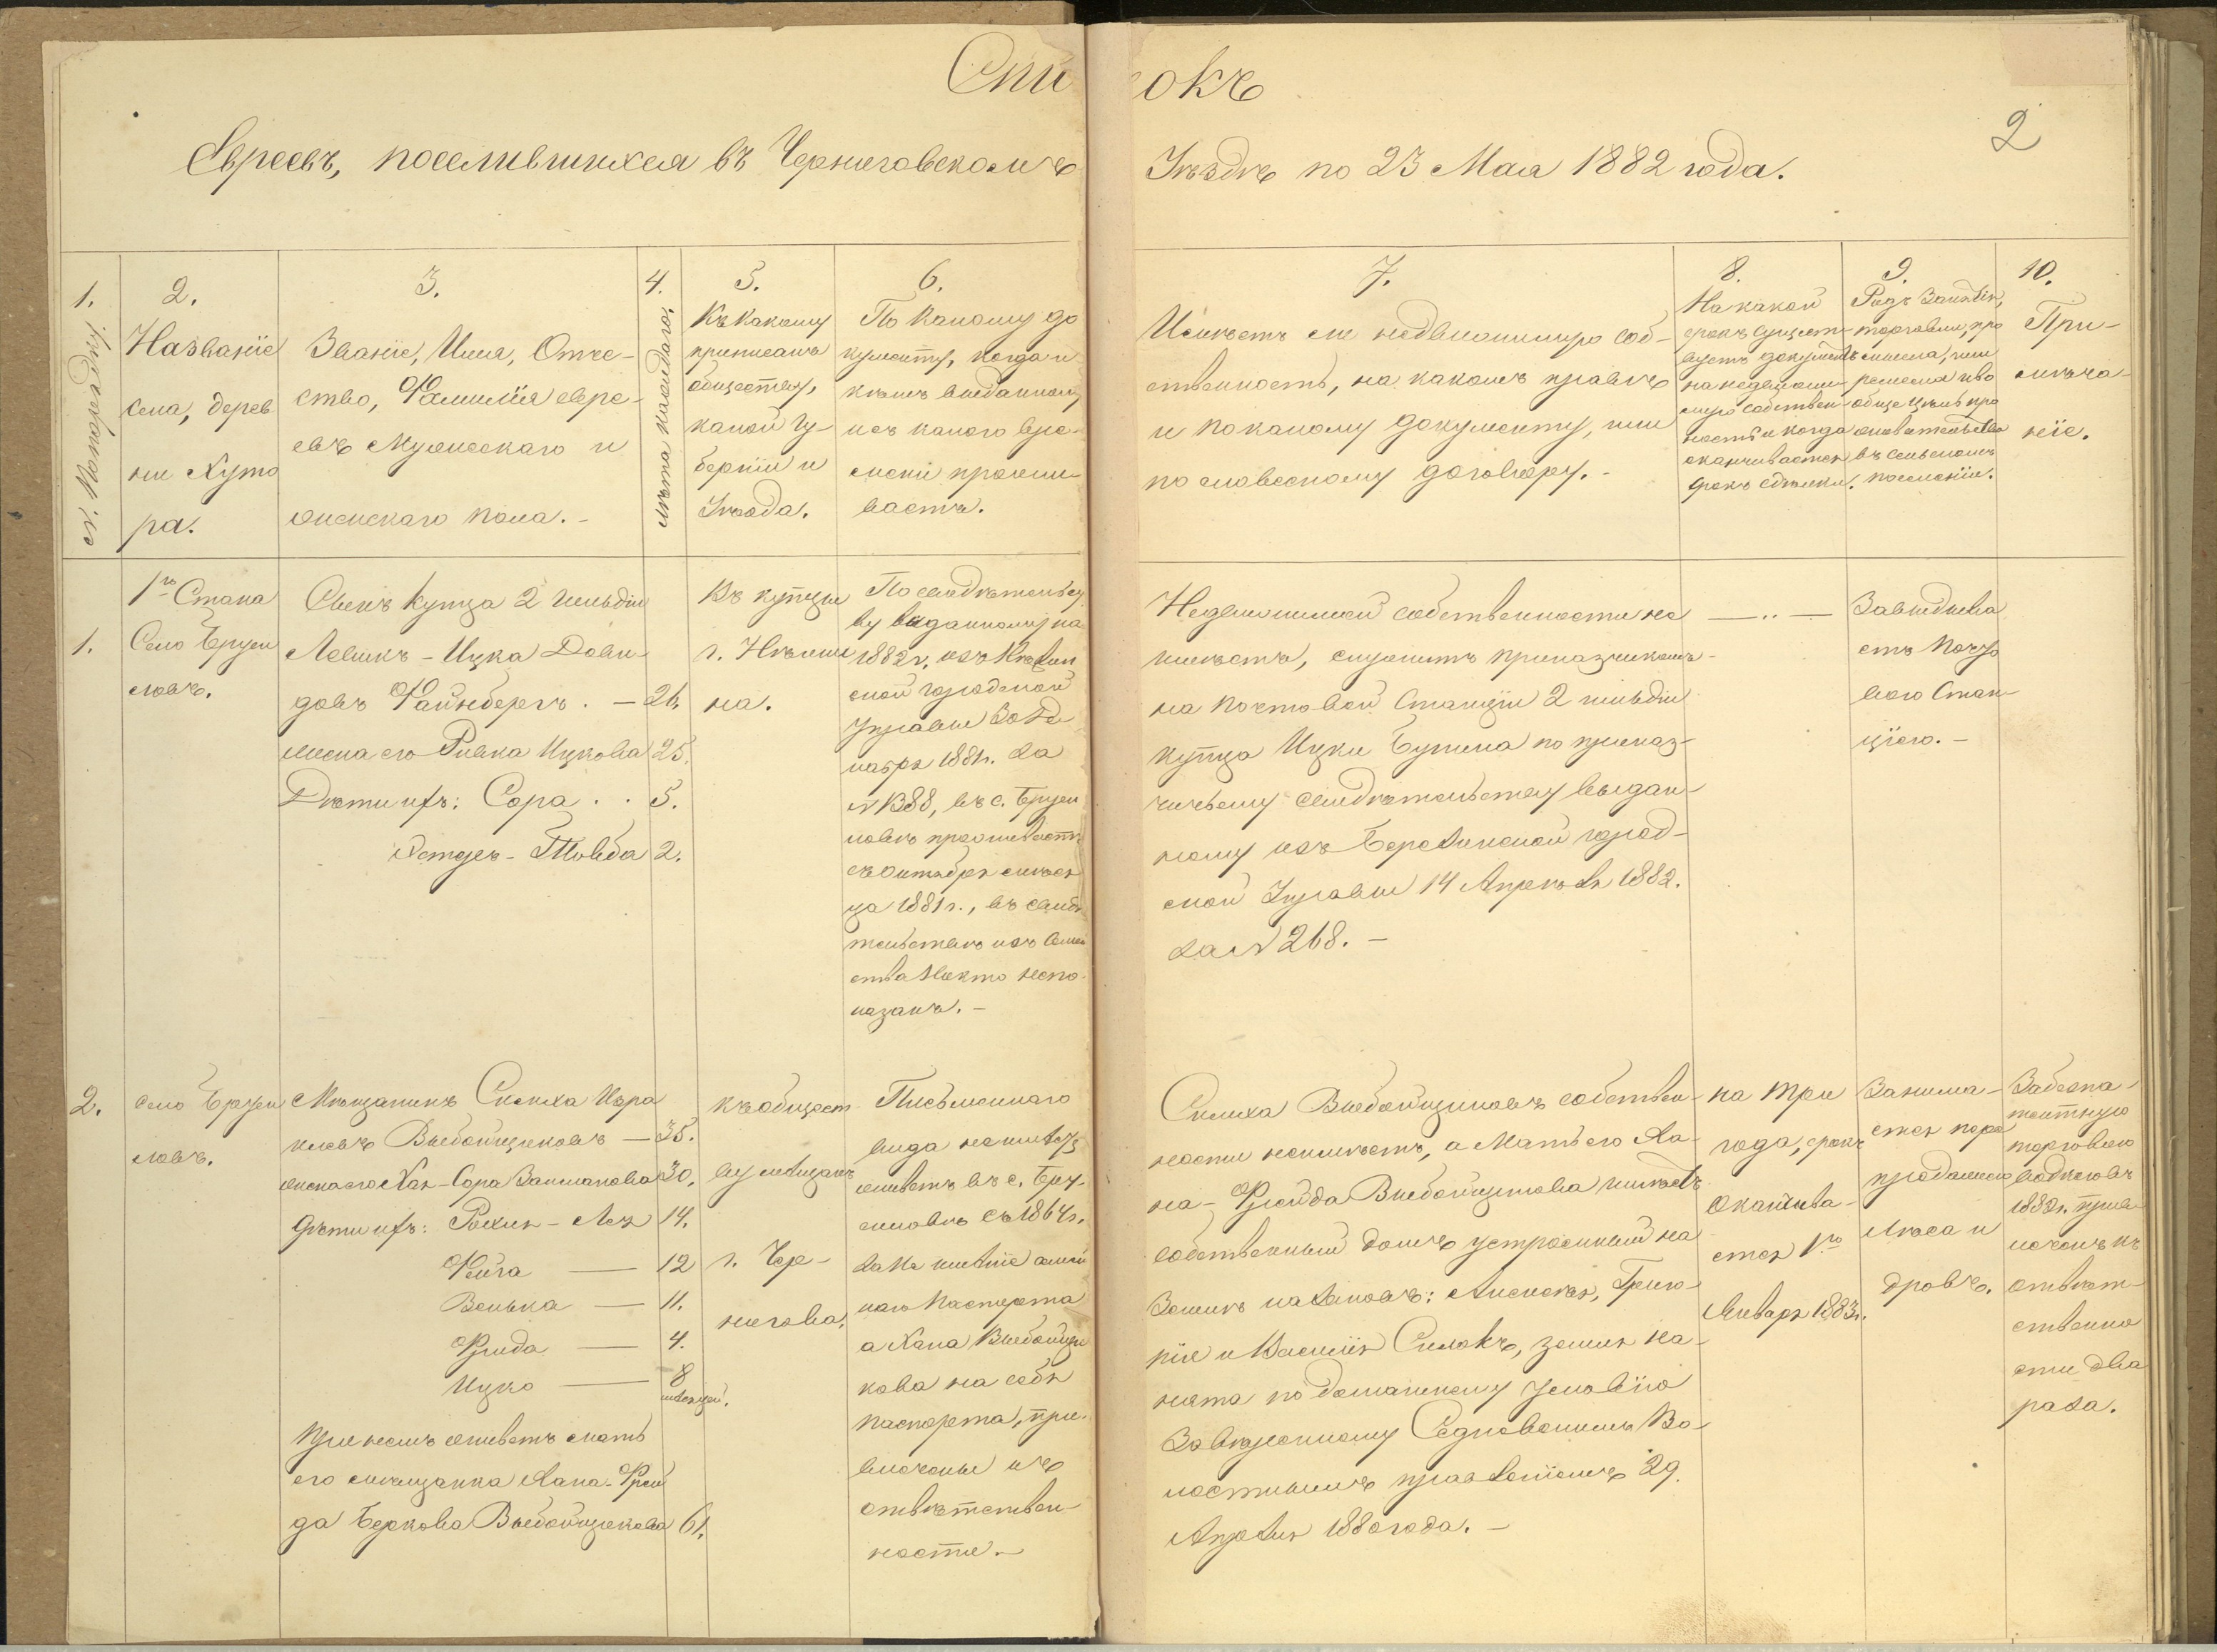 Списокъ
2
Евреевъ, поселившихся въ Черниговскомъ Уѣздѣ по 23 Мая 1882 года.
1.
2.
3.
4.
5.
6.
7.
8.
9.
10.
№. По порядку.
Названіе
села, дерев
ни Хуто
ра.
Званіе, Имя, Отче-
ство, Фамилія евре-
евъ мужескаго и
женскаго пола.-
лѣта каждаго.
Къ какому
приписанъ
обществу,
какой Гу-
берніи и
Уѣзда.
По какому до
кументу, когда и
кѣмъ выданному
и съ какого вре-
мени прожи-
ваетъ.
Имѣетъ ли недвижимую соб-
ственность, на какомъ правѣ
и по какому документу, или
по словесному договору.-
На какой
срокъ сущест-
вуетъ документъ
на недвижи-
мую собствен-
ность и когда
оканчивается
срокъ сдѣлки.
Родъ Занятія,
торговли, про
мысла, или
ремесла и во
обще цѣль про
живательства
въ сельскомъ
поселеніи.
При-
мѣча-
ніе.
1го Стана
1.
Село Брусил
ловъ.
Сынъ купца 2 гильдіи
Левикъ-Ицка Дови-
довъ Файнбергъ. - 26.
жена его Ривка Ицкова 25.
Дѣти ихъ: Сора . . 5.
Эстеръ-Товба 2.
Въ купцы
г. Нѣжи
на.
По свидѣтельст
ву выданному на
1882 г. изъ Нѣжин
ской городской
управы 30 Де
кабря 1881 г. за
№ 1388, въ с. Бруси
ловѣ проживаетъ
съ Октября мѣся
ца 1881 г., въ свидѣ
тельствѣ изъ семей
ства никто не по-
казанъ.-
Недвижимой собственности не
имѣетъ, служитъ прикащикомъ-
на почтовой Станціи 2 гильдіи
купца Ицки Бунина по приказ-
чичьему свидѣтельству выдан-
ному изъ Березинской город-
ской Управы 14 Апрѣля 1882.
за № 268.-
—..—
Завѣдыва
етъ Почто
вою Стан-
ціею.-
2.
село Брусил
ловъ.
Мѣщанинъ Симха Изра
илевъ Выбойщиковъ — 35.
жена его Хая-Сора Залманова 30.
дѣти ихъ: Рохля-Лея 14.
Фейга — 12
Венька — 11.
Фрида — 4.
Ицко — 8
мѣсяцей.
При немъ живетъ мать
его мѣщанка Хана-Фрей
да Беркова Выбойщикова 61.
къ общест
ву мѣщанъ
г. Чер-
нигова.
Письменнаго
вида не имѣетъ
живетъ въ с. Бру-
силовѣ съ 1864 г.
за не имѣніе семей
наго паспорта
а Хана Выбойщи
кова на себя
паспорта, при-
влечены къ
отвѣтствен-
ности.-
Симха Выбойщиковъ собствен-
ности не имѣетъ, а мать его Ха-
на-Фрейда Выбойщикова имѣетъ
собственный домъ устроенный на
Землѣ казаковъ: Алексѣя, Григо-
рія и Василія Симакъ, земля на-
нята по домашнему условію
Завѣренному Седневскимъ Во-
лостнымъ правленіемъ 29.
Апрѣля 1880 года.-
на три
года, срокъ
оканчива-
ется 1го
Января 1883 г.
Занима-
ется пере
продажею
лѣса и
дровъ.
За безпа-
тентную
торговлю
водкою въ
1880 г. привле
ченъ къ
отвѣт-
ственно
сти два
раза.